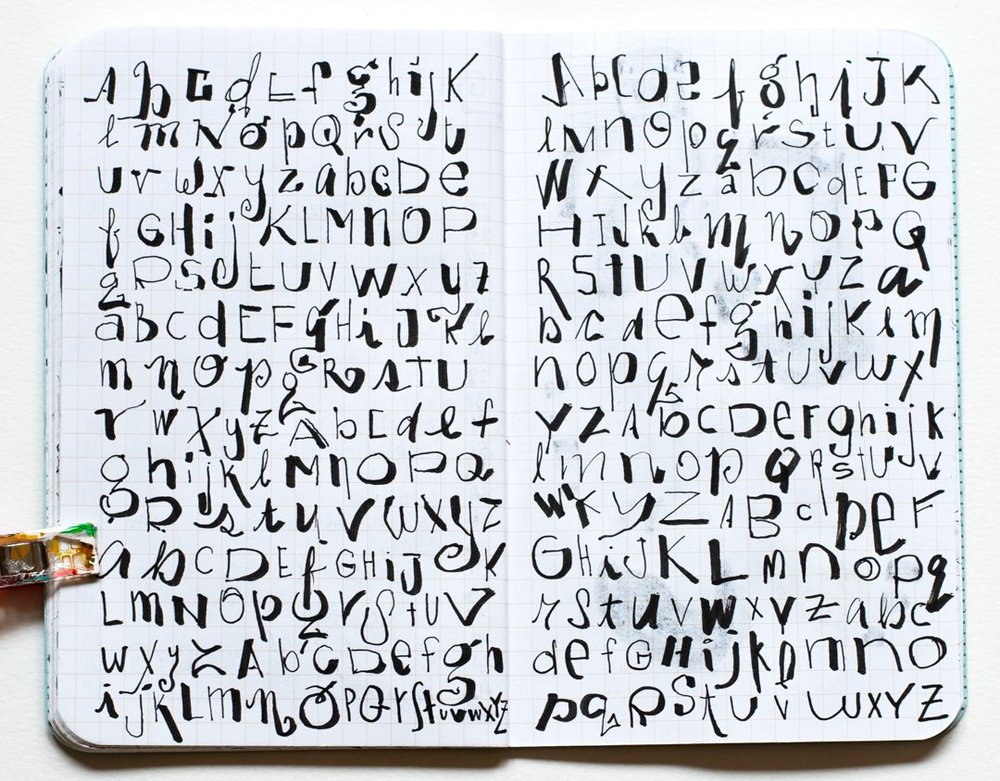 A b C d E f g h i j K
l m N o p Q r S t
u v w x y z a b c D e
f G H i j K L M n O P
q R S t U V W X y z
a B C d E F g H i J K l
m n o p q R s T U
v w x y z A b C d e f
g h i j k l M n O P Q
R s t u V w x y z
a b C D E f G H i J K
L m N O p Q r S t U V
w x y z A b C D e f g h
i j k L m n O P Q r S t u v w x y z
A b C d e f g h i J K
l M n O p q r s t U V
W x y z a b C d E F G
H I J k l m n o p Q
R S t U V W x y Z a
b c d e f g h i j K l m
n o p q r s t U v w x
Y Z A b C D e F g h i j k
l m n o p Q R s t U v
W X y Z A B C D E F
G H i J K L m n o p q
r S t u v w x y z a b c
d e f G H i j k l m n O
p q R S t U v w x Y Z